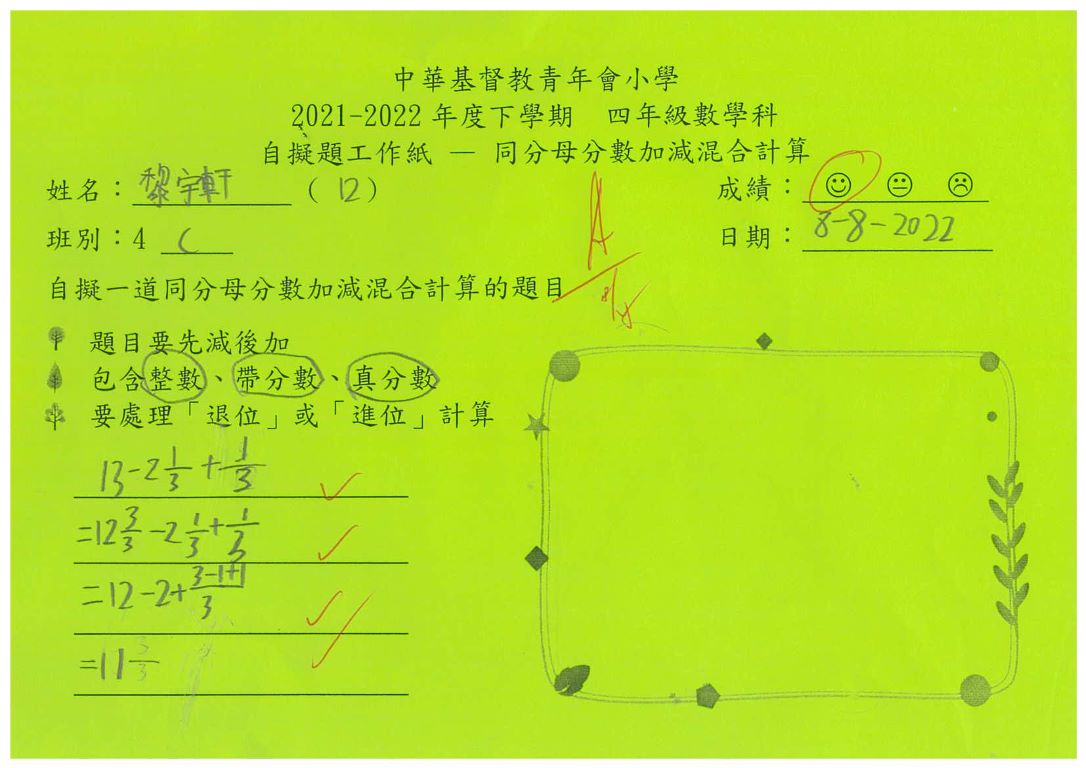 中華基督教青年會小學
2021-2022 年度下學期 四年級數學科
自擬題工作紙 — 同分母分數加減混合計算
姓名：黎宇軒 (12) 成績：☺ 😐 ☹
班別：4 C 日期：8-8-2022
A
自擬一道同分母分數加減混合計算的題目
題目要先減後加
包含整數、帶分數、真分數
要處理「退位」或「進位」計算
13-2 1/3 + 1/3
=12 3/3 -2 1/3 + 1/3
=12-2+ 3-1+1/3
=11